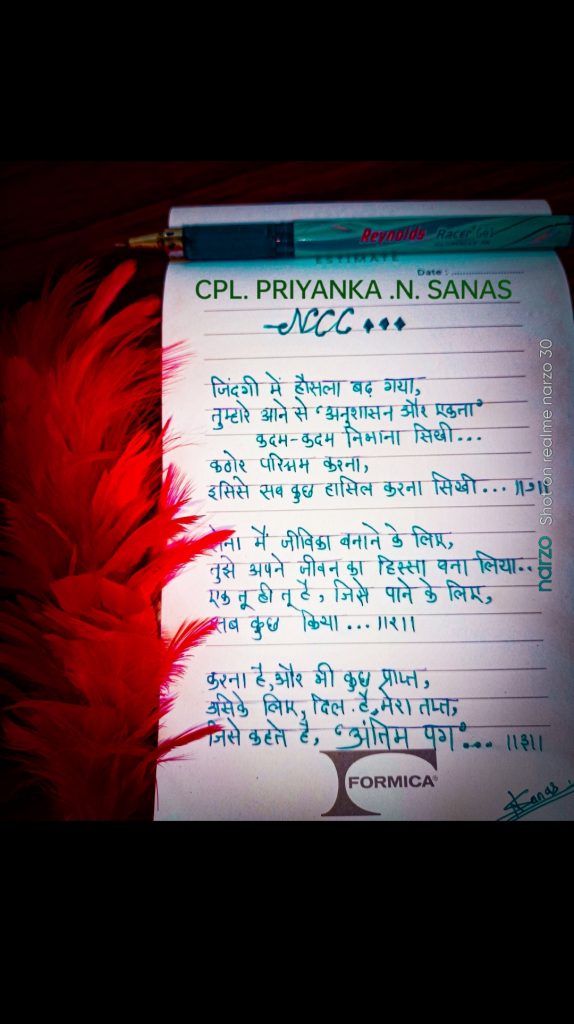 Reynolds Racer Gel
ESTIMATE
Date :
CPL. PRIYANKA .N. SANAS
NCC
जिंदगी में हौसला बढ़ गया,
तुम्हारे आने से 'अनुशासन और एकता'
कदम-कदम निभाना सिखी...
कठोर परिश्रम करना,
इसिसे सब कुछ हासिल करना सिखी... ॥१॥
सेना में जीविका बनाने के लिए,
तुझे अपने जीवन का हिस्सा बना लिया..
एक तू ही तू है, जिसे पाने के लिए,
सब कुछ किया ... ॥२॥
करना है, और भी कुछ प्राप्त,
उसके लिए, दिल है, मेरा तप्त,
जिसे कहते है, 'अंतिम पग'... ॥३॥
FORMICA®
Sanas
narzo Shot on realme narzo 30